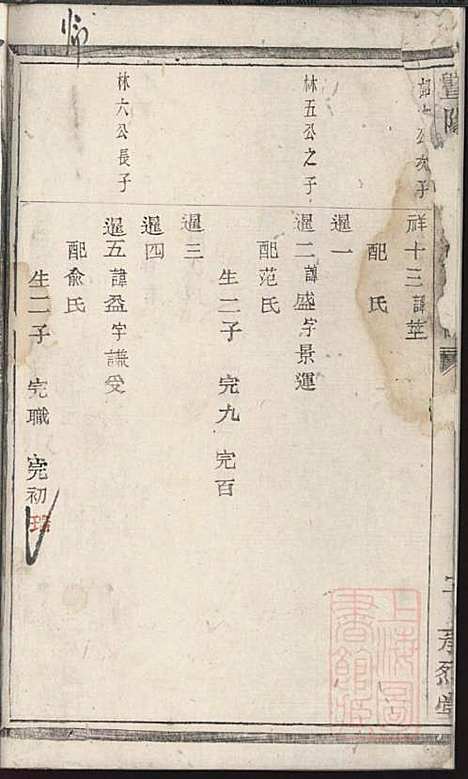 暨陽
孝烈堂
公次子
祥十三諱莖
配 氏
暹一
林五公之子
暹二諱盛字景運
配范氏
生二子 完九 完百
暹三
暹四
林六公長子
暹五諱盈字謙受
配俞氏
生二子 完職 完初
上海圖書館藏